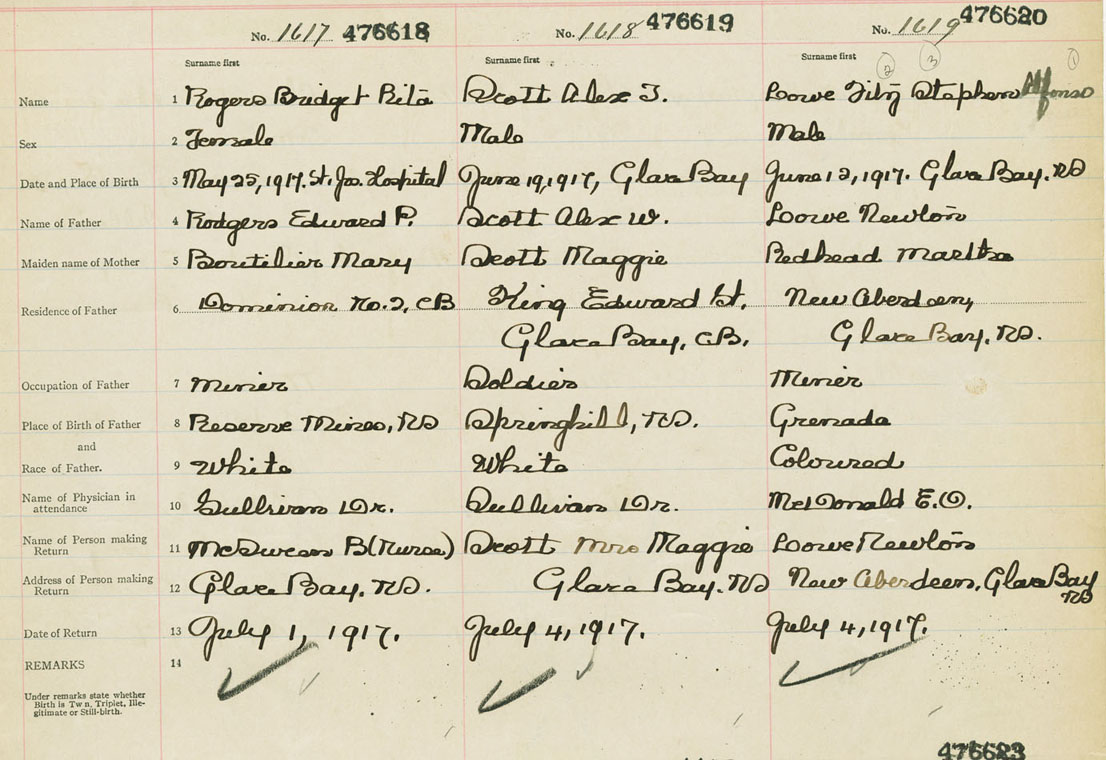 No. 1617 476618 No. 1618 476619 No. 1619 476620
Surname first Surname first Surname first 2 3 1
Name 1 Rogers Bridget Rita Scott Alex J. Lowe Fitz Stephen Alfonso
Sex 2 Female Male Male
Date and Place of Birth 3 May 25, 1917. St. Jos. Hospital June 19, 1917, Glace Bay June 12, 1917. Glace Bay. NS
Name of Father 4 Rodgers Edward P. Scott Alex W. Lowe Newton
Maiden name of Mother 5 Boutilier Mary Scott Maggie Redhead Martha
Residence of Father 6 Dominion No. 2, CB King Edward St. New Aberdeen,
Glace Bay, CB. Glace Bay, NS.
Occupation of Father 7 Miner Soldier Miner
Place of Birth of Father 8 Reserve Mines, NS Springhill, NS. Grenada
and
Race of Father. 9 White White Coloured
Name of Physician in
attendance 10 Sullivan Dr. Sullivan Dr. McDonald E.O.
Name of Person making
Return 11 McSwean B (Nurse) Scott Mrs Maggie Lowe Newton
Address of Person making
Return 12 Glace Bay, NS. Glace Bay. NS New Aberdeen, Glace Bay
NS
Date of Return 13 July 1, 1917. July 4, 1917. July 4, 1917.
REMARKS 14
Under remarks state whether
Birth is Tw n, Triplet, Ille-
gitimate or Still-birth.
476623